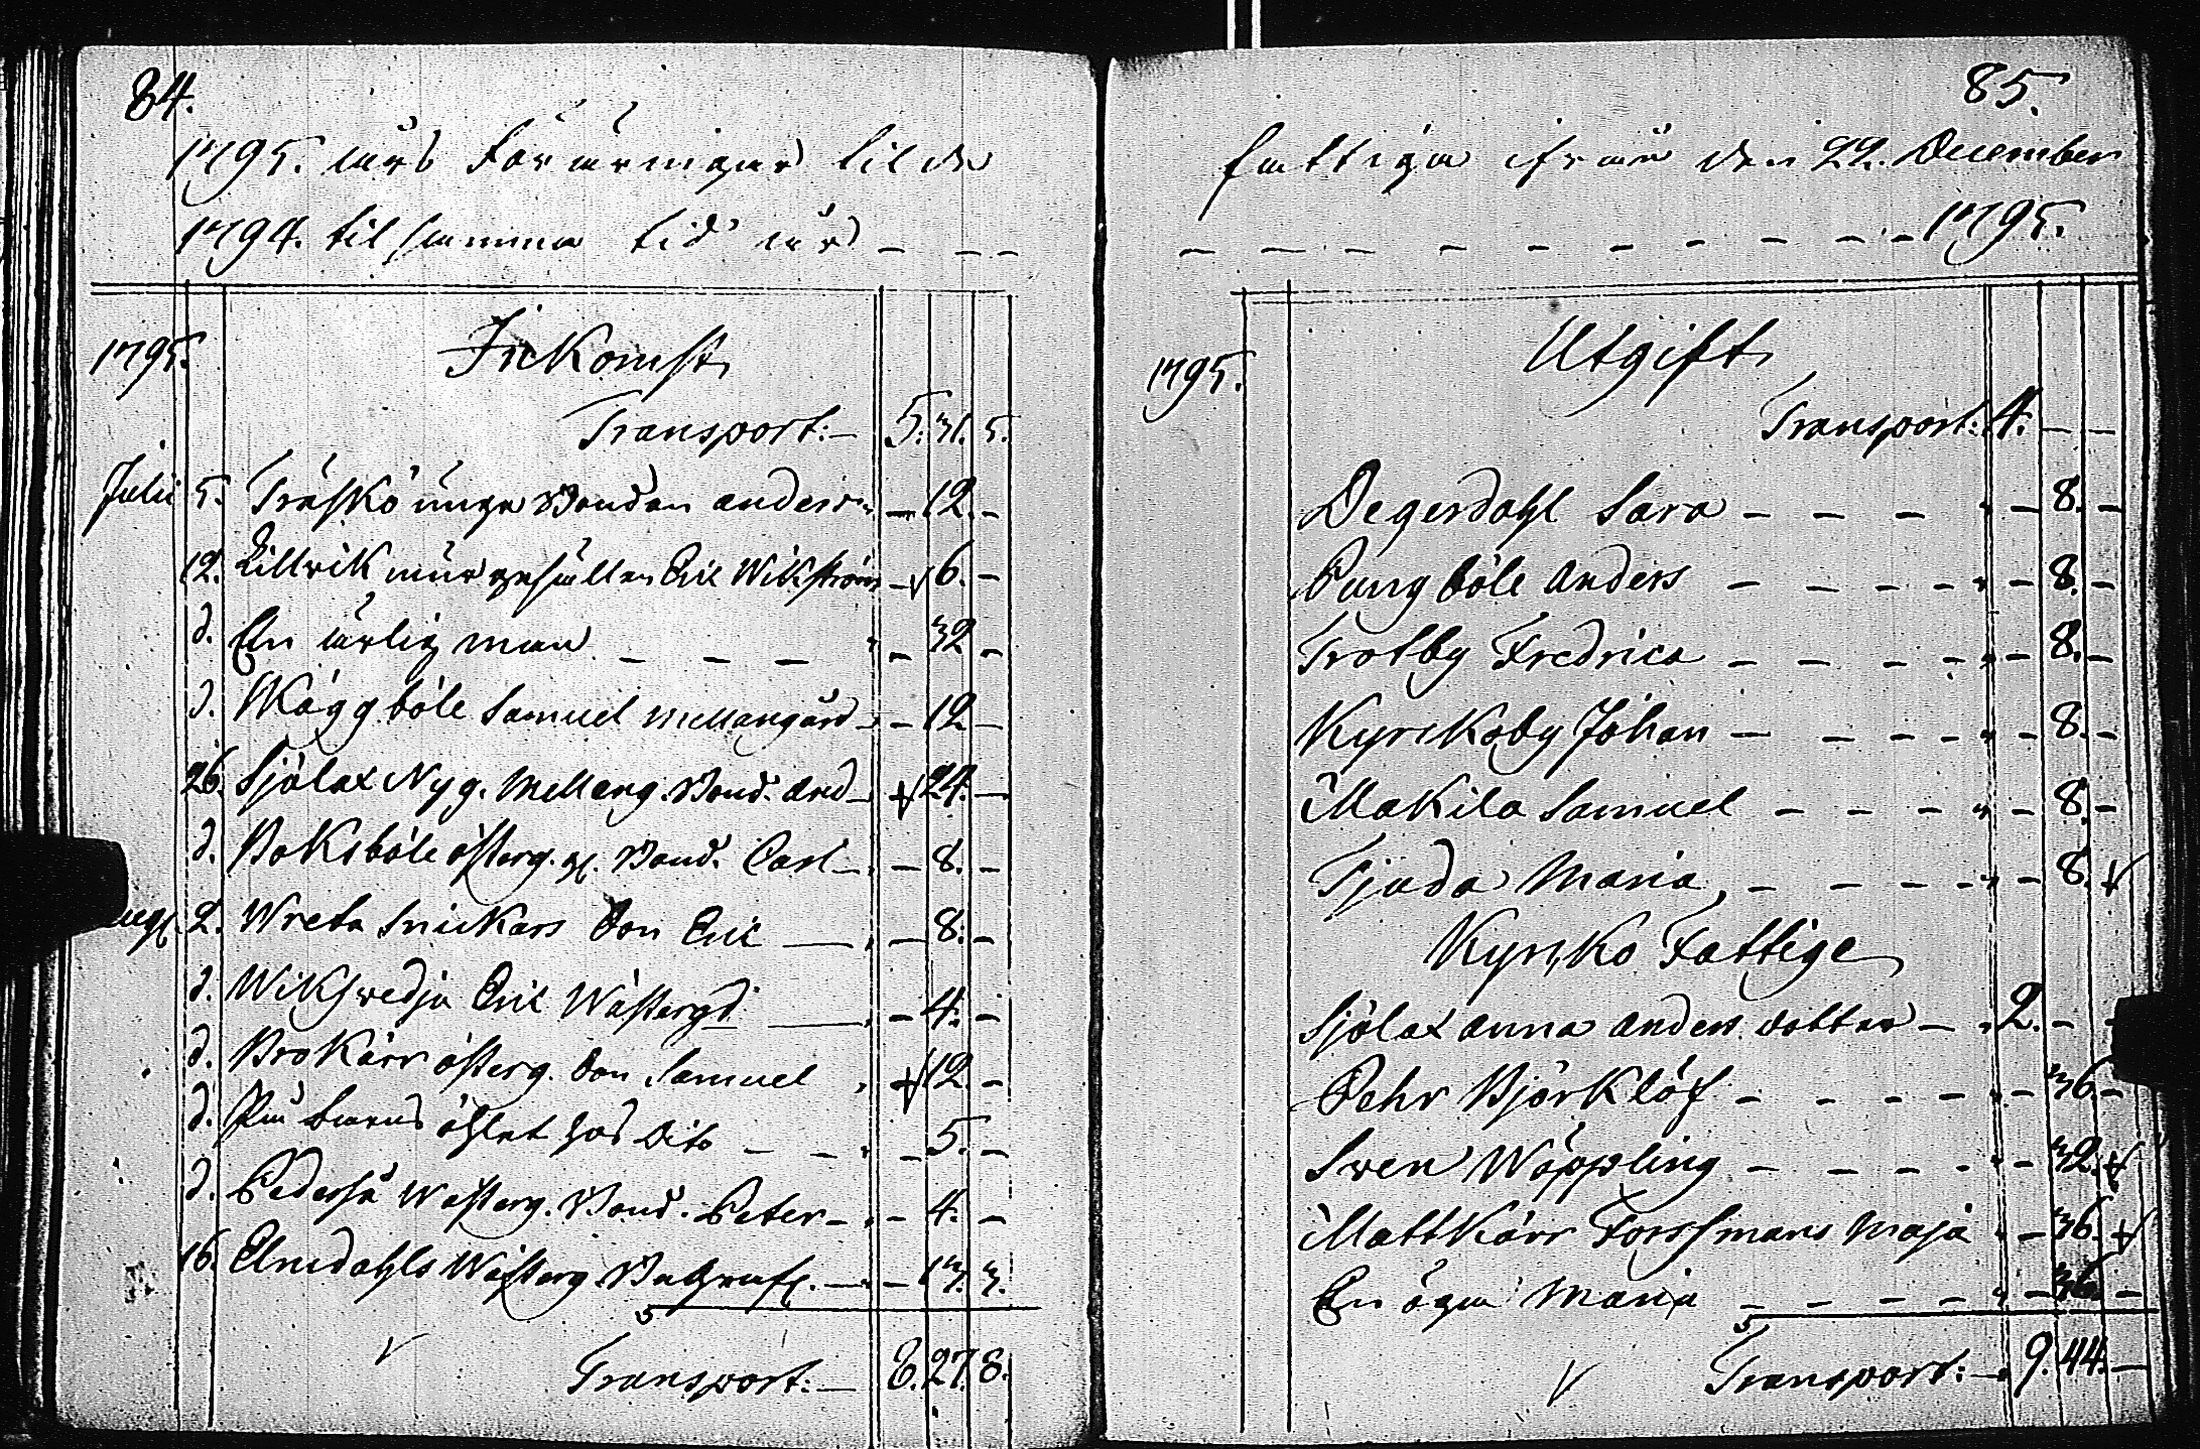 84.
1795. års Föräringar til de
1794. til samma tid år – – –
1795. Inkomst
Transport:– 5. 31. 5.
Julii 5. Träskö unga Bondan anders – 12. –
12. Lillvik mur gesällen Eric Wikström – 6. –
d. En ärlig man – – – – 32 –
d. Wäggböle Samuel Mellangård – – 12 –
26. Sjölax Nyg. Mellang. Bond. And – 24. –
d. Boksböle österg. gl. Bond. Carl – – 8. –
Aug. 2. Wreta Snickars Son Eric – – 8. –
d. Wiksvedja Eric Wästergd. – – 4. –
d. Brokärr österg. Son Samuel – 12. –
d. På barns öhlet hos dito – – – 5. –
d. Pederså Wästerg. Bond. Peter – – 4. –
16. Elmdahls Wästerg. – – 13. 3.
Transport:– 8. 27. 8.
85.
fattiga ifrån den 22. December
– – – – – – – – – – 1795.
1795. Utgift
Transport: 4. – –
Degerdahl Sara – – – – 8. –
Pungböle Anders – – – – – 8. –
Trotby Fredrica – – – – – 8. –
Kyrckoby Johan – – – – – 8. –
Makila Samuel – – – – – 8. –
Tjuda Maria – – – – – 8.
Kyrko Fattige
Sjölax Anna Anders dotter – 2. – –
Pehr Björklöf – – – – – 36. –
Sven Wäppling – – – – – 32.
Mattkärr Forssmans Maja – 36.
En ögda Maria – – – – – 36 –
Transport:– 9. 44. –